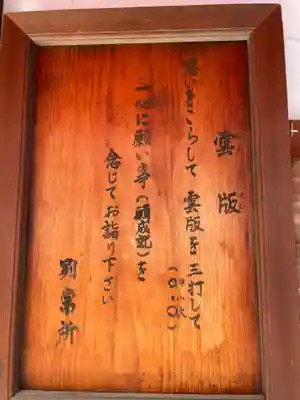 雲版
思いをこらして 雲版を 三打して
一心に願い事(願成就)を
念じてお詣り下さい
別当所